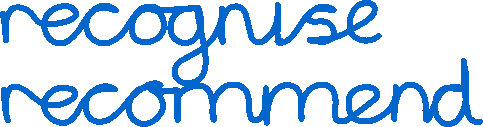 recognise
recommend